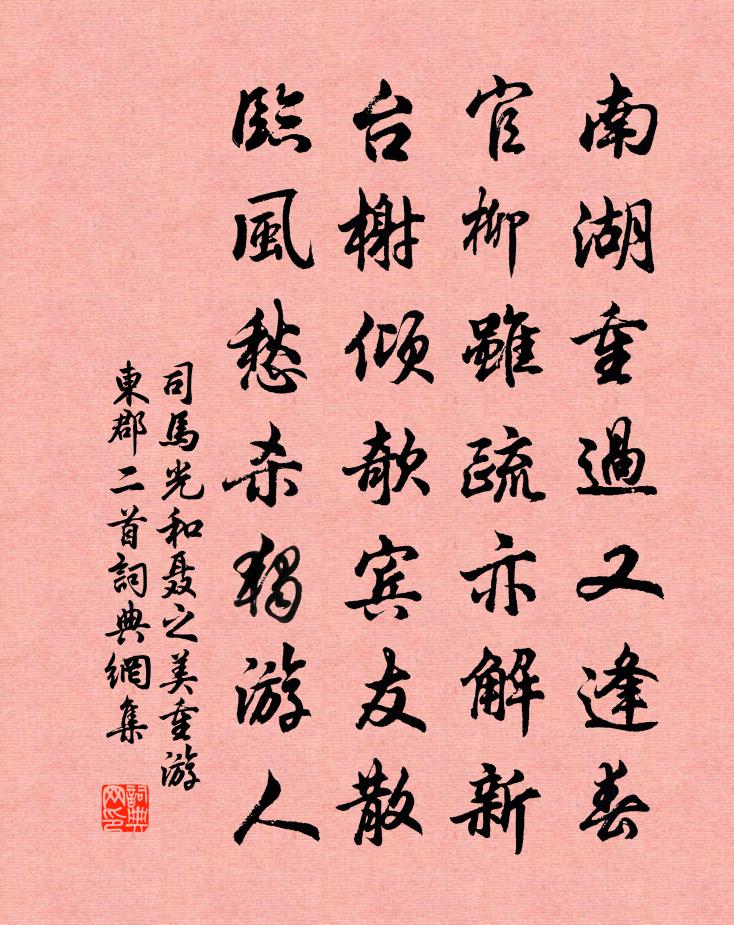 南湖重過又逢春
官柳雖疏亦解新
台榭傾欹宾友散
臨風愁杀獨游人
司馬光和聂之美重游
東郡二首詞典網集
詞典网印